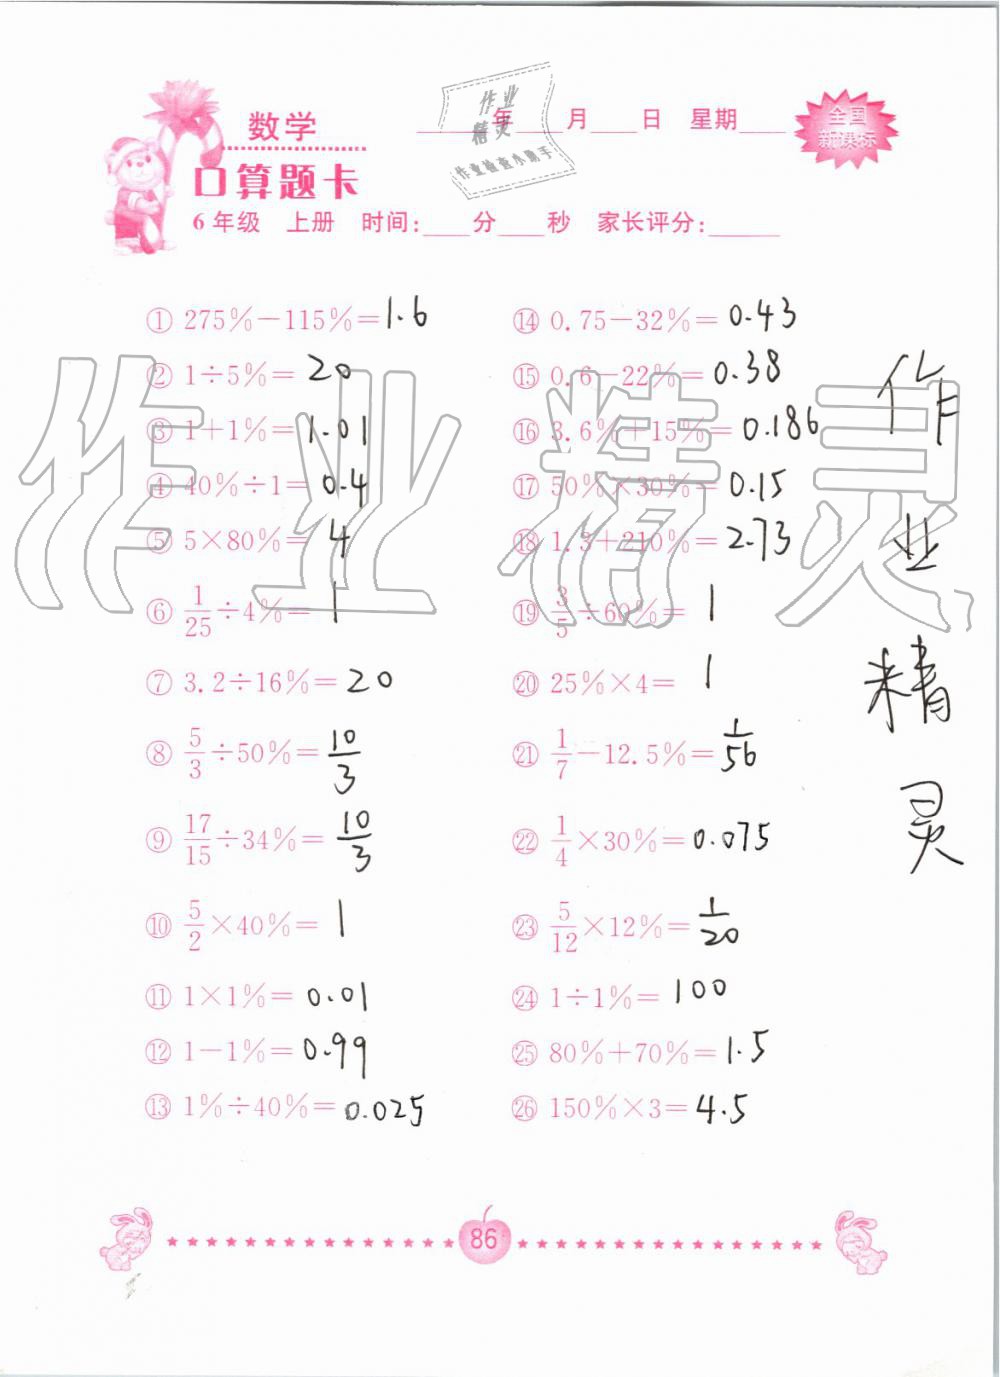 数学
口算题卡
____年____月____日 星期____
全国
新课标
作业
精灵
作业检查小助手
6年级 上册 时间:____分____秒 家长评分:______
① 275%-115%=1.6
② 1÷5%=20
③ 1+1%=1.01
④ 40%÷1=0.4
⑤ 5×80%=4
⑥ 1/25÷4%=1
⑦ 3.2÷16%=20
⑧ 5/3÷50%=10/3
⑨ 17/15÷34%=10/3
⑩ 5/2×40%=1
⑪ 1×1%=0.01
⑫ 1-1%=0.99
⑬ 1%÷40%=0.025
⑭ 0.75-32%=0.43
⑮ 0.6-22%=0.38
⑯ 3.6%+15%=0.186
⑰ 50%×30%=0.15
⑱ 1.3+210%=2.73
⑲ 3/5÷60%=1
⑳ 25%×4=1
㉑ 1/7-12.5%=1/56
㉒ 1/4×30%=0.075
㉓ 5/12×12%=1/20
㉔ 1÷1%=100
㉕ 80%+70%=1.5
㉖ 150%×3=4.5
作业精灵
作
业
精
灵
86